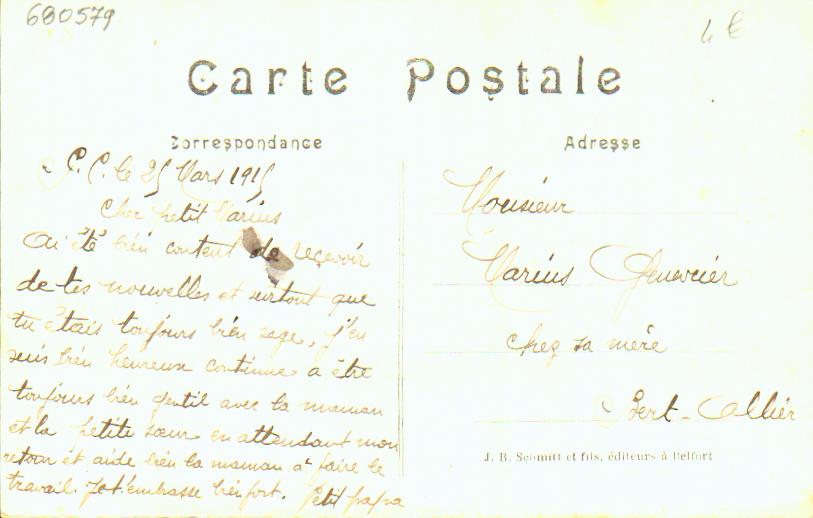 680579
4 €
Carte Postale
Correspondance
P.C. le 25 Mars 1915
Cher petit Marius
Ai été bien content de reçevoir
de tes nouvelles et surtout que
tu étais toujours bien sage, j'en
suis bien heureux continue a être
toujours bien gentil avec la maman
et la petite sœur en attendant mon
retour et aide bien la maman a faire le
travail. Je t'embrasse bien fort. Petit papa
Adresse
Monsieur
Marius Genevrier
chez sa mère
Bert-Allier
J. B. Schmitt et fils, éditeurs à Belfort